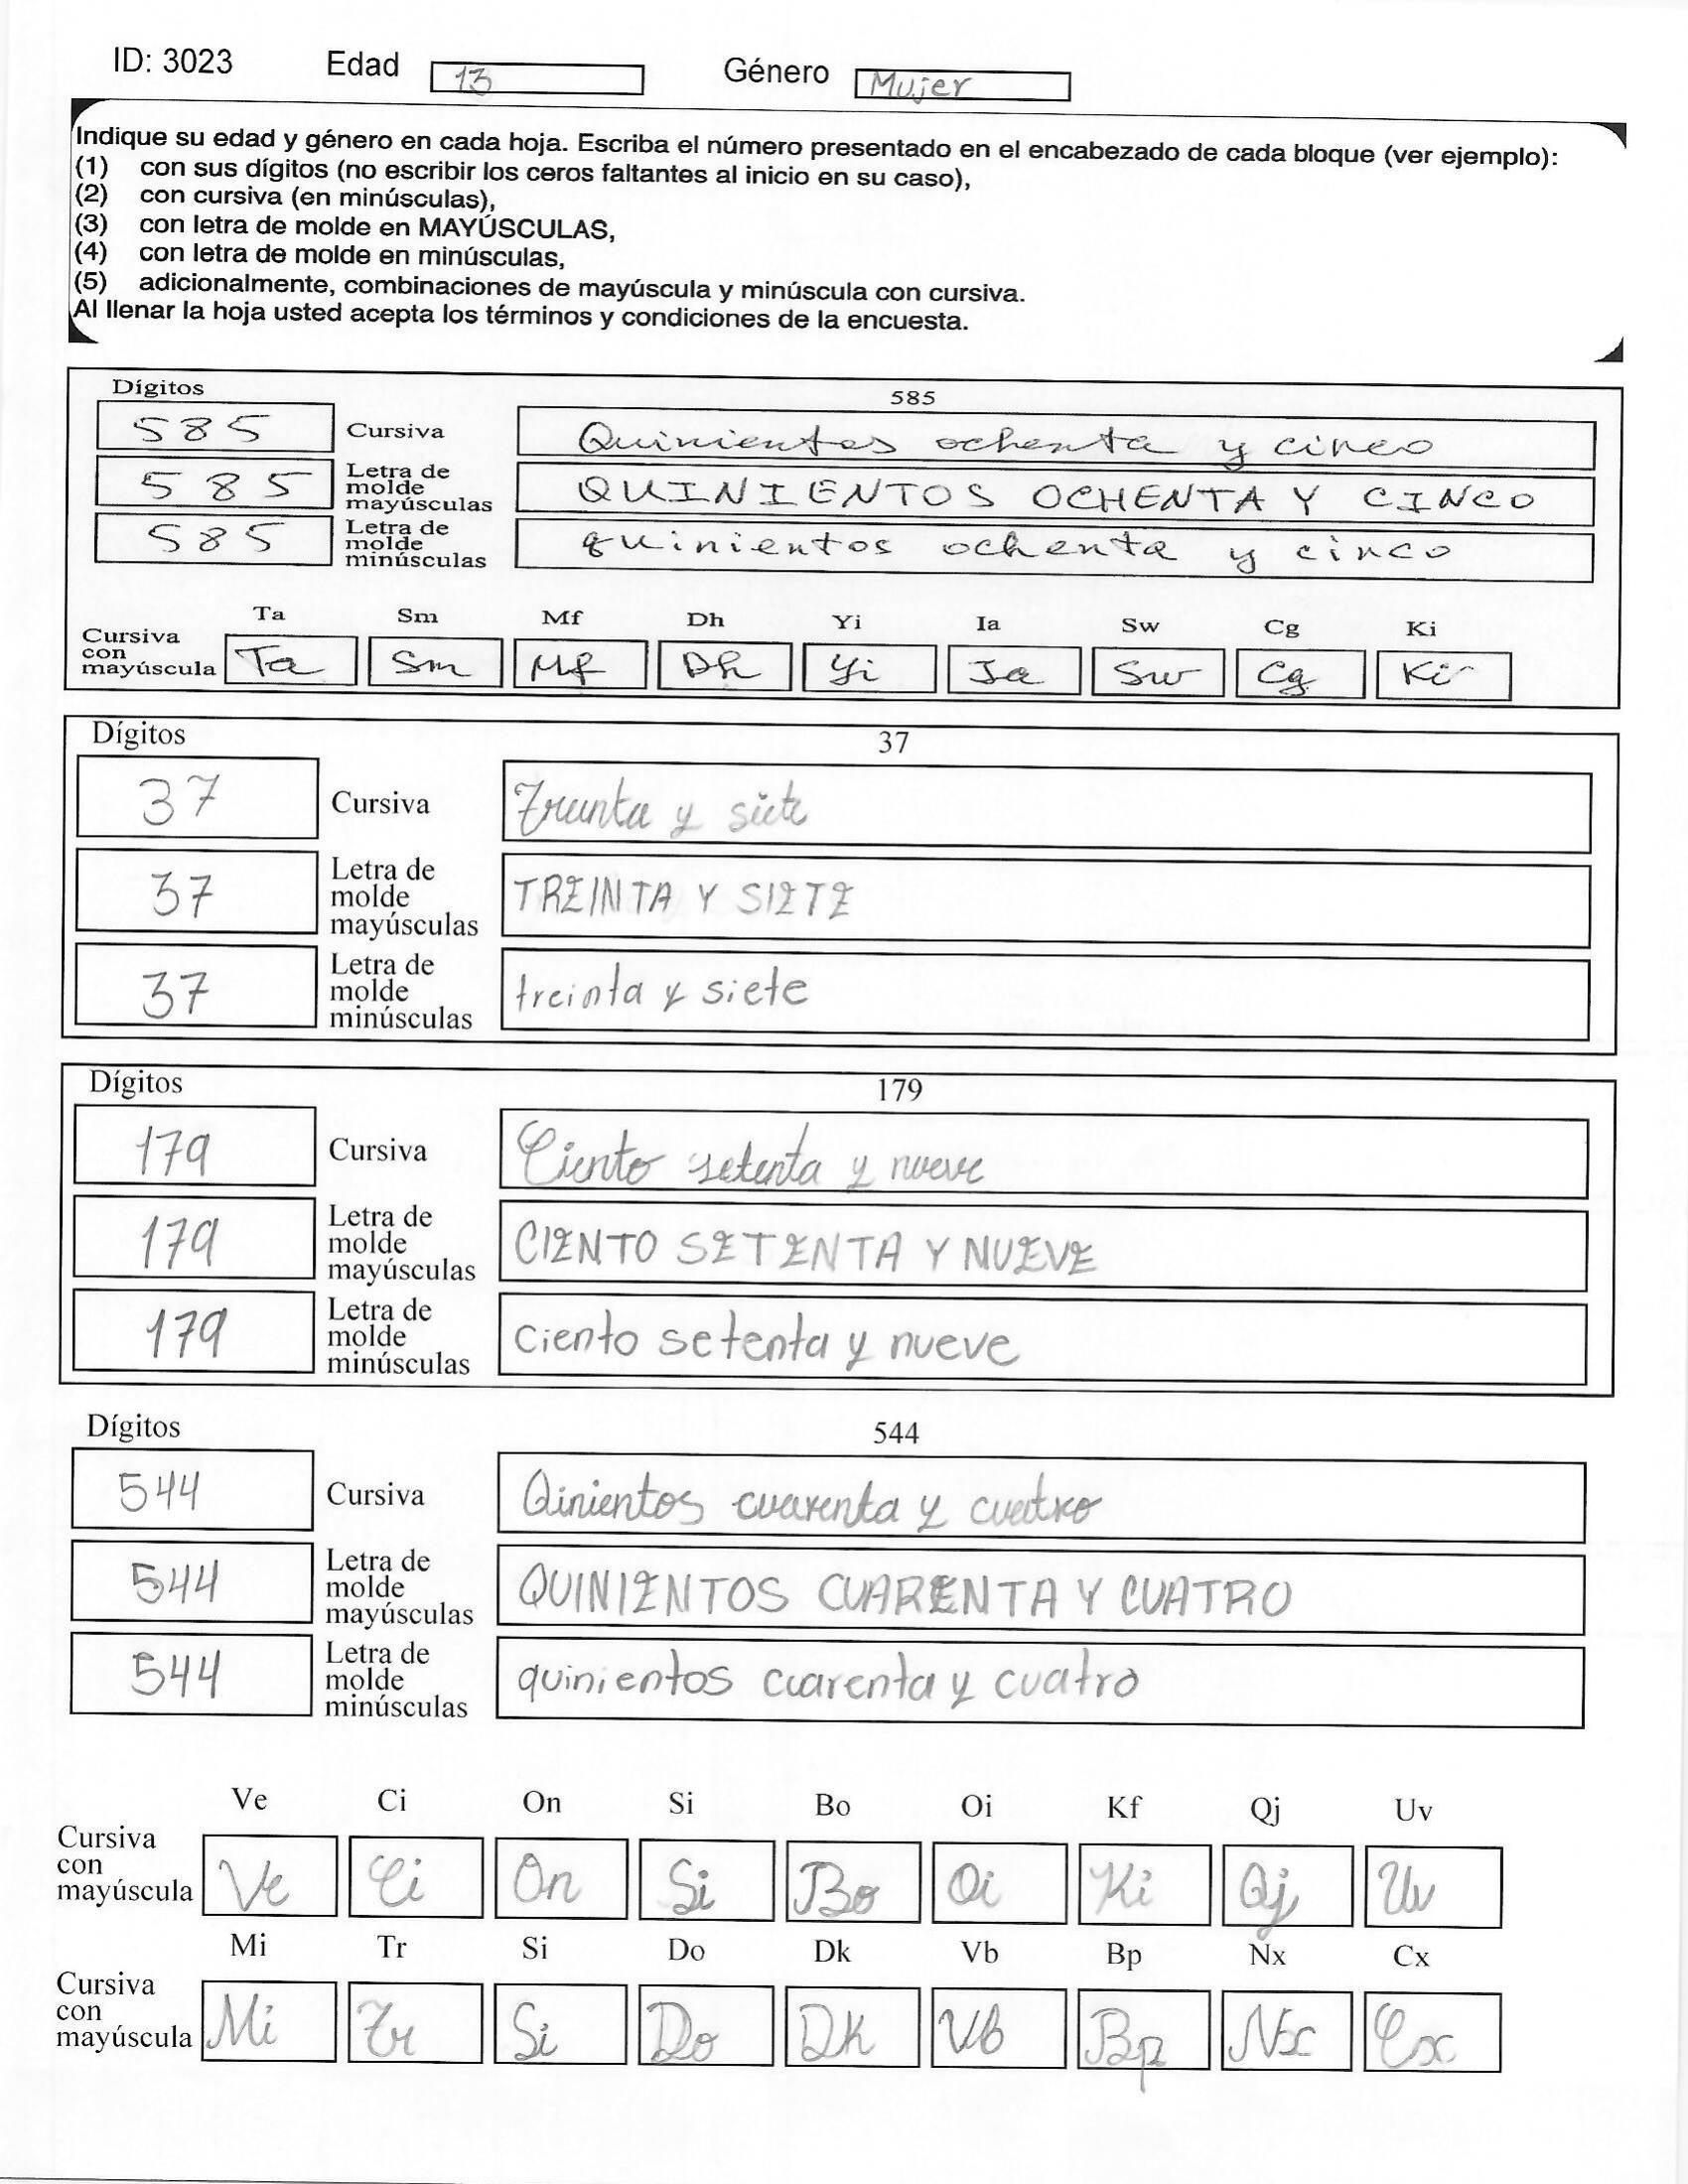 ID: 3023 Edad 13 Género Mujer
Indique su edad y género en cada hoja. Escriba el número presentado en el encabezado de cada bloque (ver ejemplo):
(1) con sus dígitos (no escribir los ceros faltantes al inicio en su caso),
(2) con cursiva (en minúsculas),
(3) con letra de molde en MAYÚSCULAS,
(4) con letra de molde en minúsculas,
(5) adicionalmente, combinaciones de mayúscula y minúscula con cursiva.
Al llenar la hoja usted acepta los términos y condiciones de la encuesta.
Dígitos 585
585 Cursiva Quinientos ochenta y cinco
585 Letra de molde mayúsculas QUINIENTOS OCHENTA Y CINCO
585 Letra de molde minúsculas quinientos ochenta y cinco
Ta Sm Mf Dh Yi Ia Sw Cg Ki
Cursiva con mayúscula Ta Sm Mf Dh Yi Ia Sw Cg Ki
Dígitos 37
37 Cursiva Treinta y siete
37 Letra de molde mayúsculas TREINTA Y SIETE
37 Letra de molde minúsculas treinta y siete
Dígitos 179
179 Cursiva Ciento setenta y nueve
179 Letra de molde mayúsculas CIENTO SETENTA Y NUEVE
179 Letra de molde minúsculas ciento setenta y nueve
Dígitos 544
544 Cursiva Qinientos cuarenta y cuatro
544 Letra de molde mayúsculas QUINIENTOS CUARENTA Y CUATRO
544 Letra de molde minúsculas quinientos cuarenta y cuatro
Ve Ci On Si Bo Oi Kf Qj Uv
Cursiva con mayúscula Ve Ci On Si Bo Oi Ki Qj Uv
Mi Tr Si Do Dk Vb Bp Nx Cx
Cursiva con mayúscula Mi Tr Si Do Dk Vb Bp Nx Cx